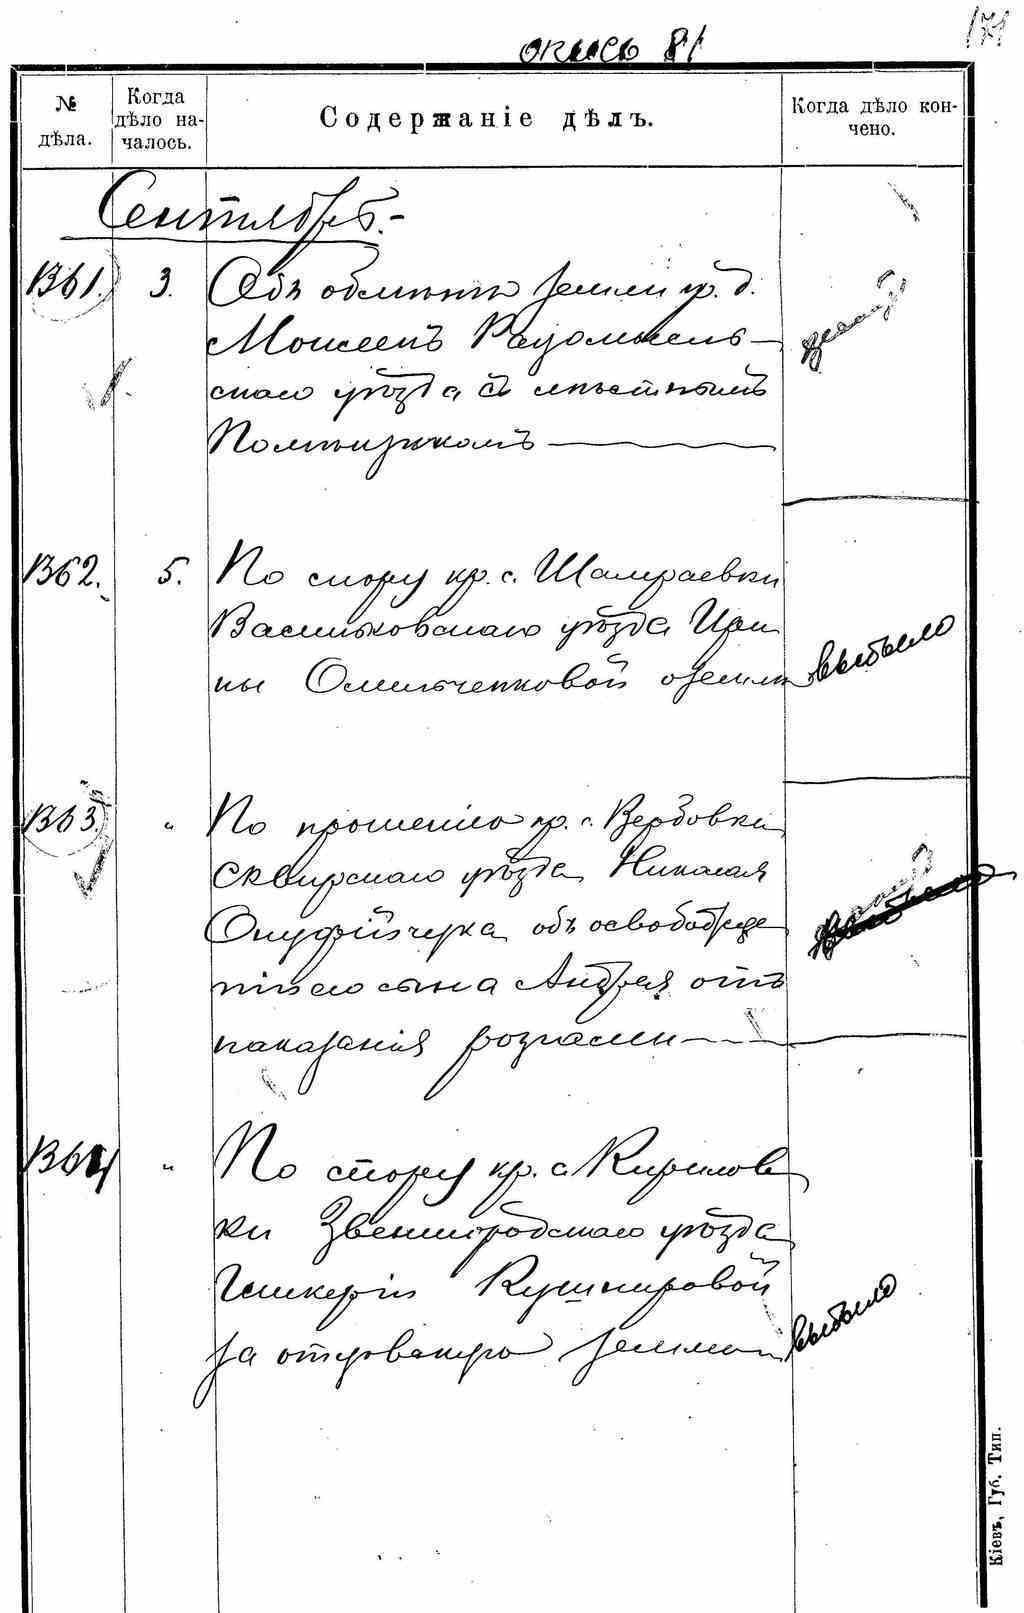 опись 81
171
№ дѣла.
Когда дѣло началось.
Содержаніе дѣлъ.
Когда дѣло кончено.
Сентябрь.-
1361. 3. Объ обмѣнѣ земли кр. д.
Моисеекъ Радомысль-
скаго уѣзда съ мѣстнымъ
Помѣщикомъ —
1362. 5. По спору кр. с. Шамраевки
Васильковскаго уѣзда Ири
ны Омельченковой о землѣ выбыло
1363. " По прошенію кр. с. Вербовки
Сквирскаго уѣзда Николая
Онуфрійчука объ освобожде
ніи его сына Андрея отъ
наказанія розгами —
1364 " По спору кр. с. Кирилов
ки Звенигородскаго уѣзда
Гликеріи Кушнировой
за отцовскую землю выбыло
Кіевъ, Губ. Тип.